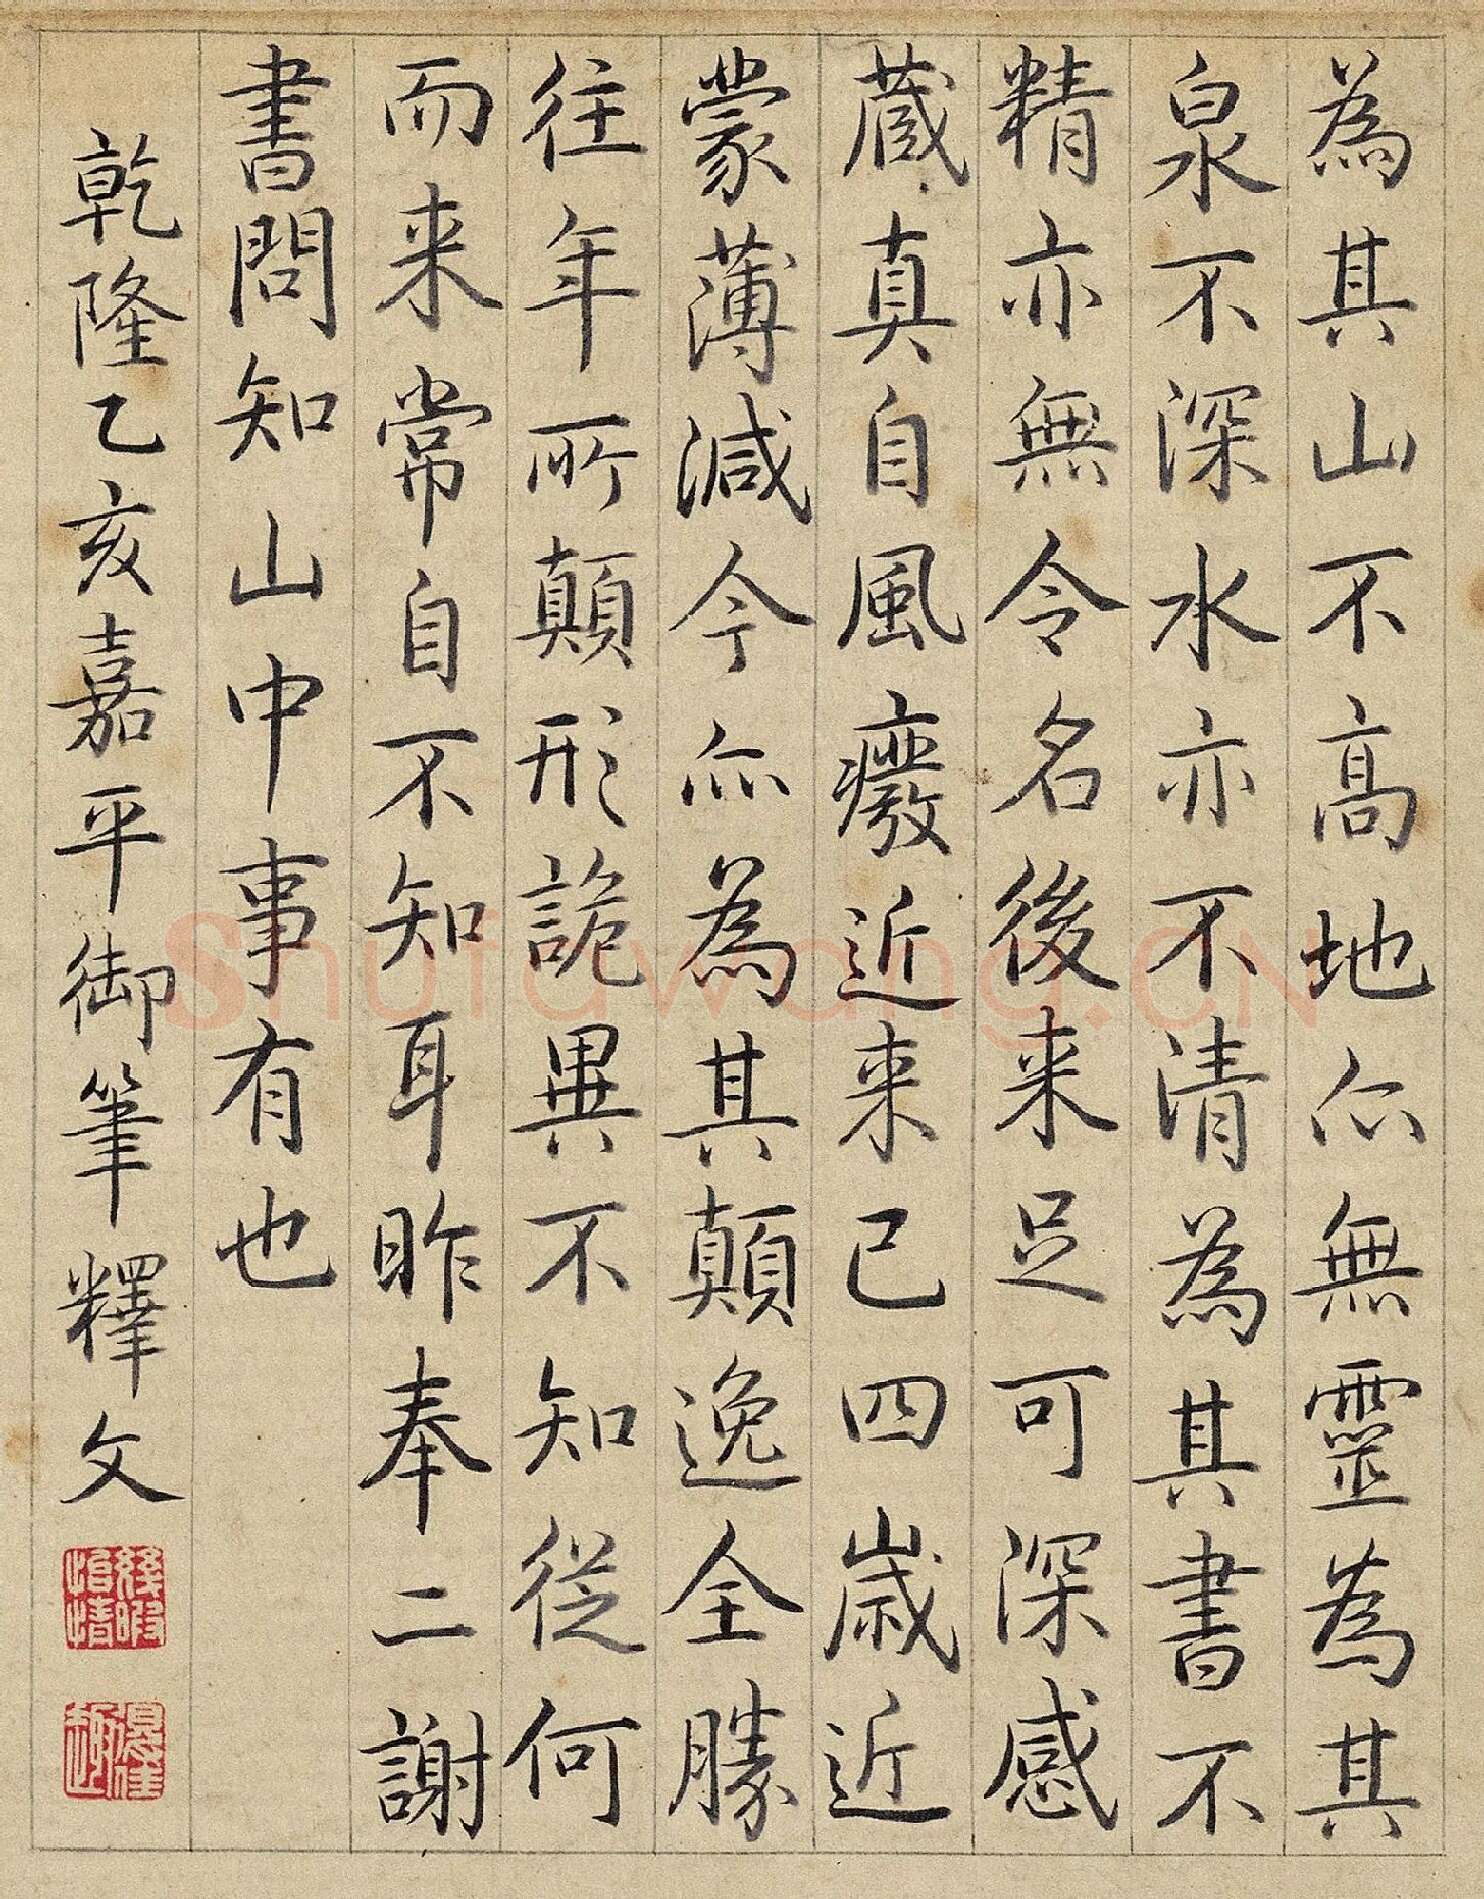 為其山不高地亦無靈為其
泉不深水亦不清為其書不
精亦無令名後来足可深感
蔵真自風癈近来已四歲近
蒙薄減今亦為其顛逸全勝
往年所顛形詭異不知從何
而来常自不知耳昨奉二謝
書問知山中事有也
乾隆乙亥嘉平御筆釋文
幾暇怡情
得佳趣
Shufawang.CN